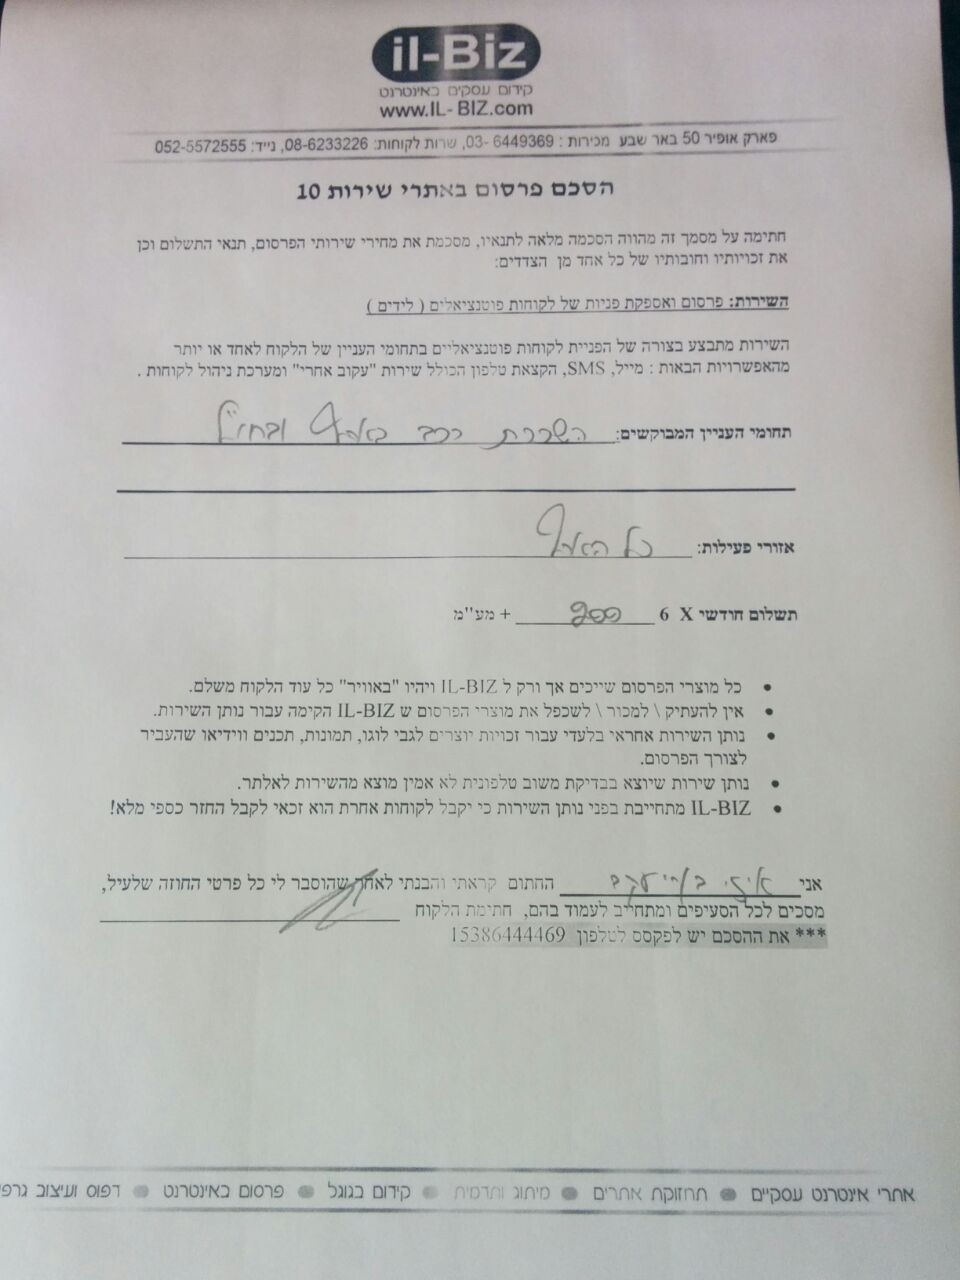 il-Biz
קידום עסקים באינטרנט
www.IL-BIZ.com
פארק אופיר 50 באר שבע מכירות : 03- 6449369, שרות לקוחות: 08-6233226, נייד: 052-5572555
הסכם פרסום באתרי שירות 10
חתימה על מסמך זה מהווה הסכמה מלאה לתנאיו, מסכמת את מחירי שירותי הפרסום, תנאי התשלום וכן
את זכויותיו וחובותיו של כל אחד מן הצדדים:
השירות: פרסום ואספקת פניות של לקוחות פוטנציאלים ( לידים )
השירות מתבצע בצורה של הפניית לקוחות פוטנציאליים בתחומי העניין של הלקוח לאחד או יותר
מהאפשרויות הבאות : מייל, SMS, הקצאת טלפון הכולל שירות "עקוב אחרי" ומערכת ניהול לקוחות .
תחומי העניין המבוקשים: השכרת רכב בארץ ובחו"ל
אזורי פעילות: כל הארץ
תשלום חודשי X 6 + מע"מ
• כל מוצרי הפרסום שייכים אך ורק ל IL-BIZ ויהיו "באוויר" כל עוד הלקוח משלם.
• אין להעתיק \ למכור \ לשכפל את מוצרי הפרסום ש IL-BIZ הקימה עבור נותן השירות.
• נותן השירות אחראי בלעדי עבור זכויות יוצרים לגבי לוגו, תמונות, תכנים ווידיאו שהעביר
לצורך הפרסום.
• נותן שירות שיוצא בבדיקת משוב טלפונית לא אמין מוצא מהשירות לאלתר.
• IL-BIZ מתחייבת בפני נותן השירות כי יקבל לקוחות אחרת הוא זכאי לקבל החזר כספי מלא!
אני החתום קראתי והבנתי לאחר שהוסבר לי כל פרטי החוזה שלעיל,
מסכים לכל הסעיפים ומתחייב לעמוד בהם, חתימת הלקוח
*** את ההסכם יש לפקסס לטלפון 15386444469
אתרי אינטרנט עסקיים • תחזוקת אתרים • מיתוג ותדמית • קידום בגוגל • פרסום באינטרנט • דפוס ועיצוב גרפי